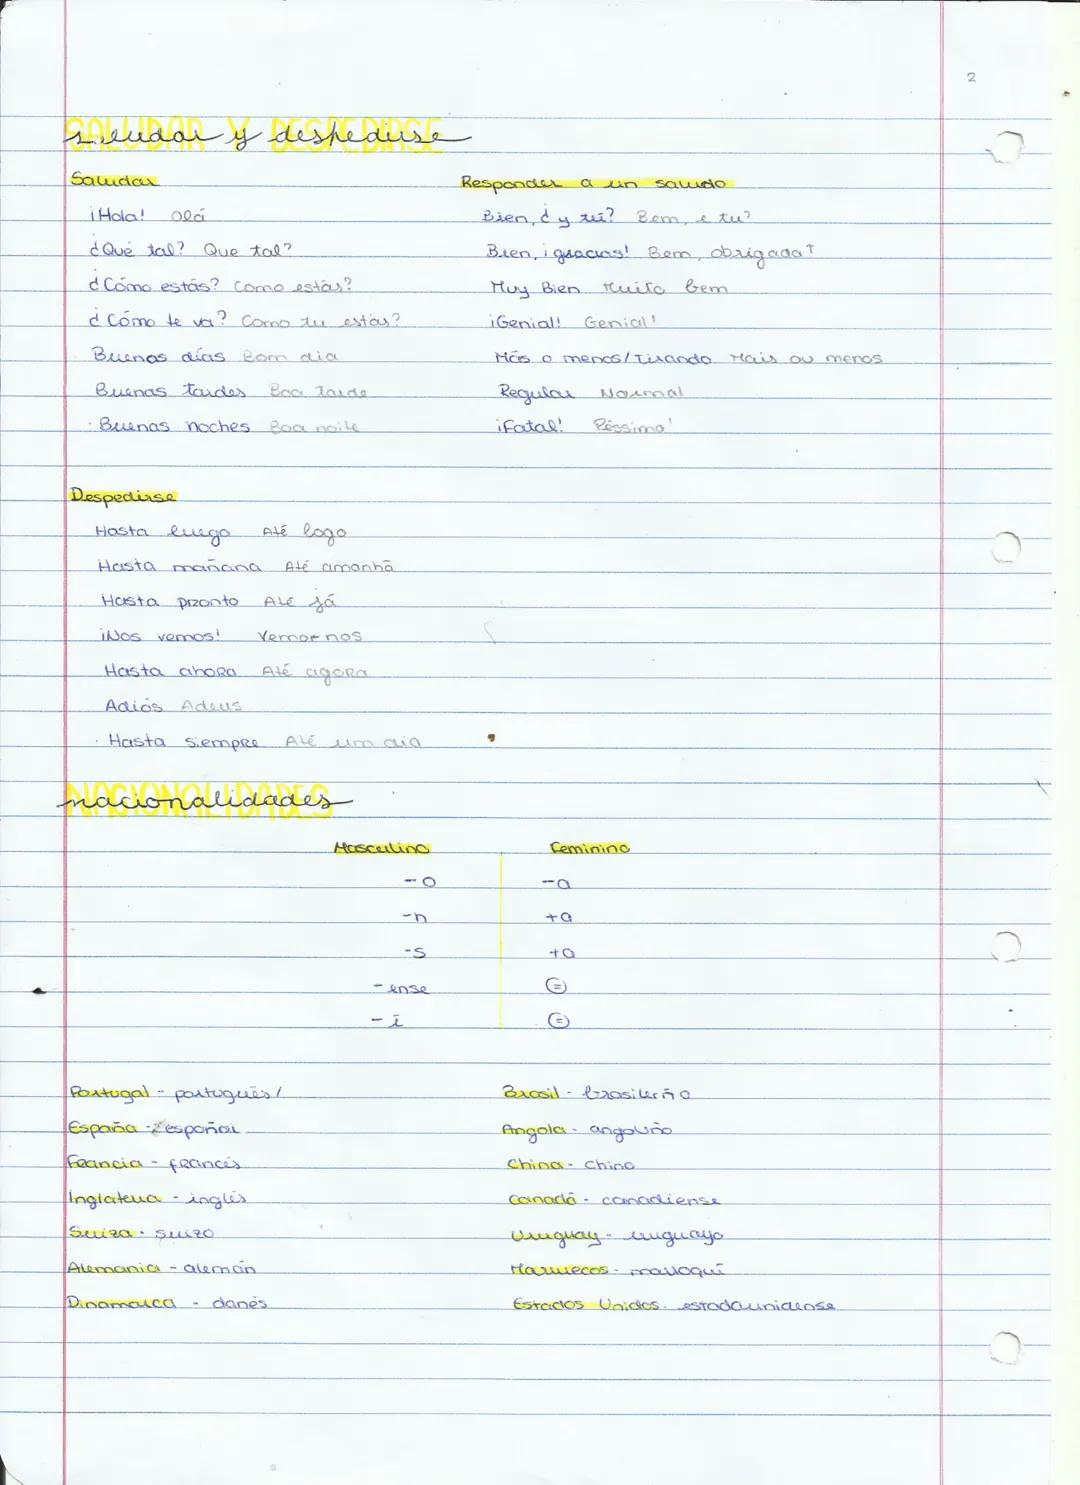 2
saludar y despedirse
Saludar
¡Hola! Olá
¿Qué tal? Que tal?
¿Cómo estás? Como estás?
¿Cómo te va? Como tu estás?
Buenos días Bom dia
Buenas tardes Boa tarde
Buenas noches Boa noite
Responder a un saludo
Bien, ¿y tú? Bem, e tu?
Bien, ¡gracias! Bem, obrigada!
Muy Bien Muito bem
¡Genial! Genial!
Más o menos/Tirando Mais ou menos
Regular Normal
¡Fatal! Péssimo!
Despedirse
Hasta luego Até logo
Hasta mañana Até amanhã
Hasta pronto Até já
¡Nos vemos! Vemo-nos
Hasta ahora Até agora
Adiós Adeus
Hasta siempre Até um dia
nacionalidades
Masculino Feminino
-o -a
-n +a
-s +a
-ense =
-í =
Portugal - portugués
España - español
Francia - francés
Inglaterra - inglés
Suiza - suizo
Alemania - alemán
Dinamarca - danés
Brasil - brasileño
Angola - angoleño
China - chino
Canadá - canadiense
Uruguay - uruguayo
Marruecos - marroquí
Estados Unidos - estadounidense